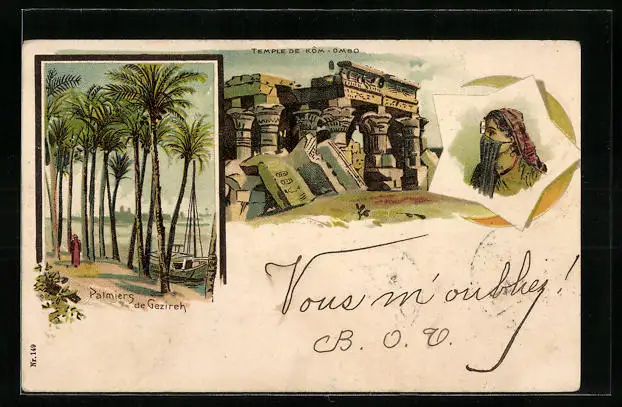 TEMPLE DE KÔM-OMBO
Palmiers
de Gezireh
Vous m'oubliez!
B. O. V.
Nr. 149